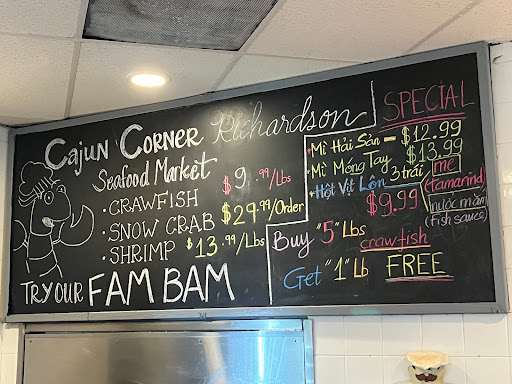 CAJUN CORNER Richardson
Seafood Market
• CRAWFISH $9.99/Lbs
• SNOW CRAB $29.99/Order
• SHRIMP $13.99/Lbs
TRY OUR FAM BAM
SPECIAL
• Mì Hải Sản = $12.99
• Mì Móng Tay $13.99
• Hột Vịt Lộn 3 trái $9.99
me
(tamarind)
nước mắm
(Fish sauce)
Buy "5" Lbs
crawfish
Get "1" Lb FREE